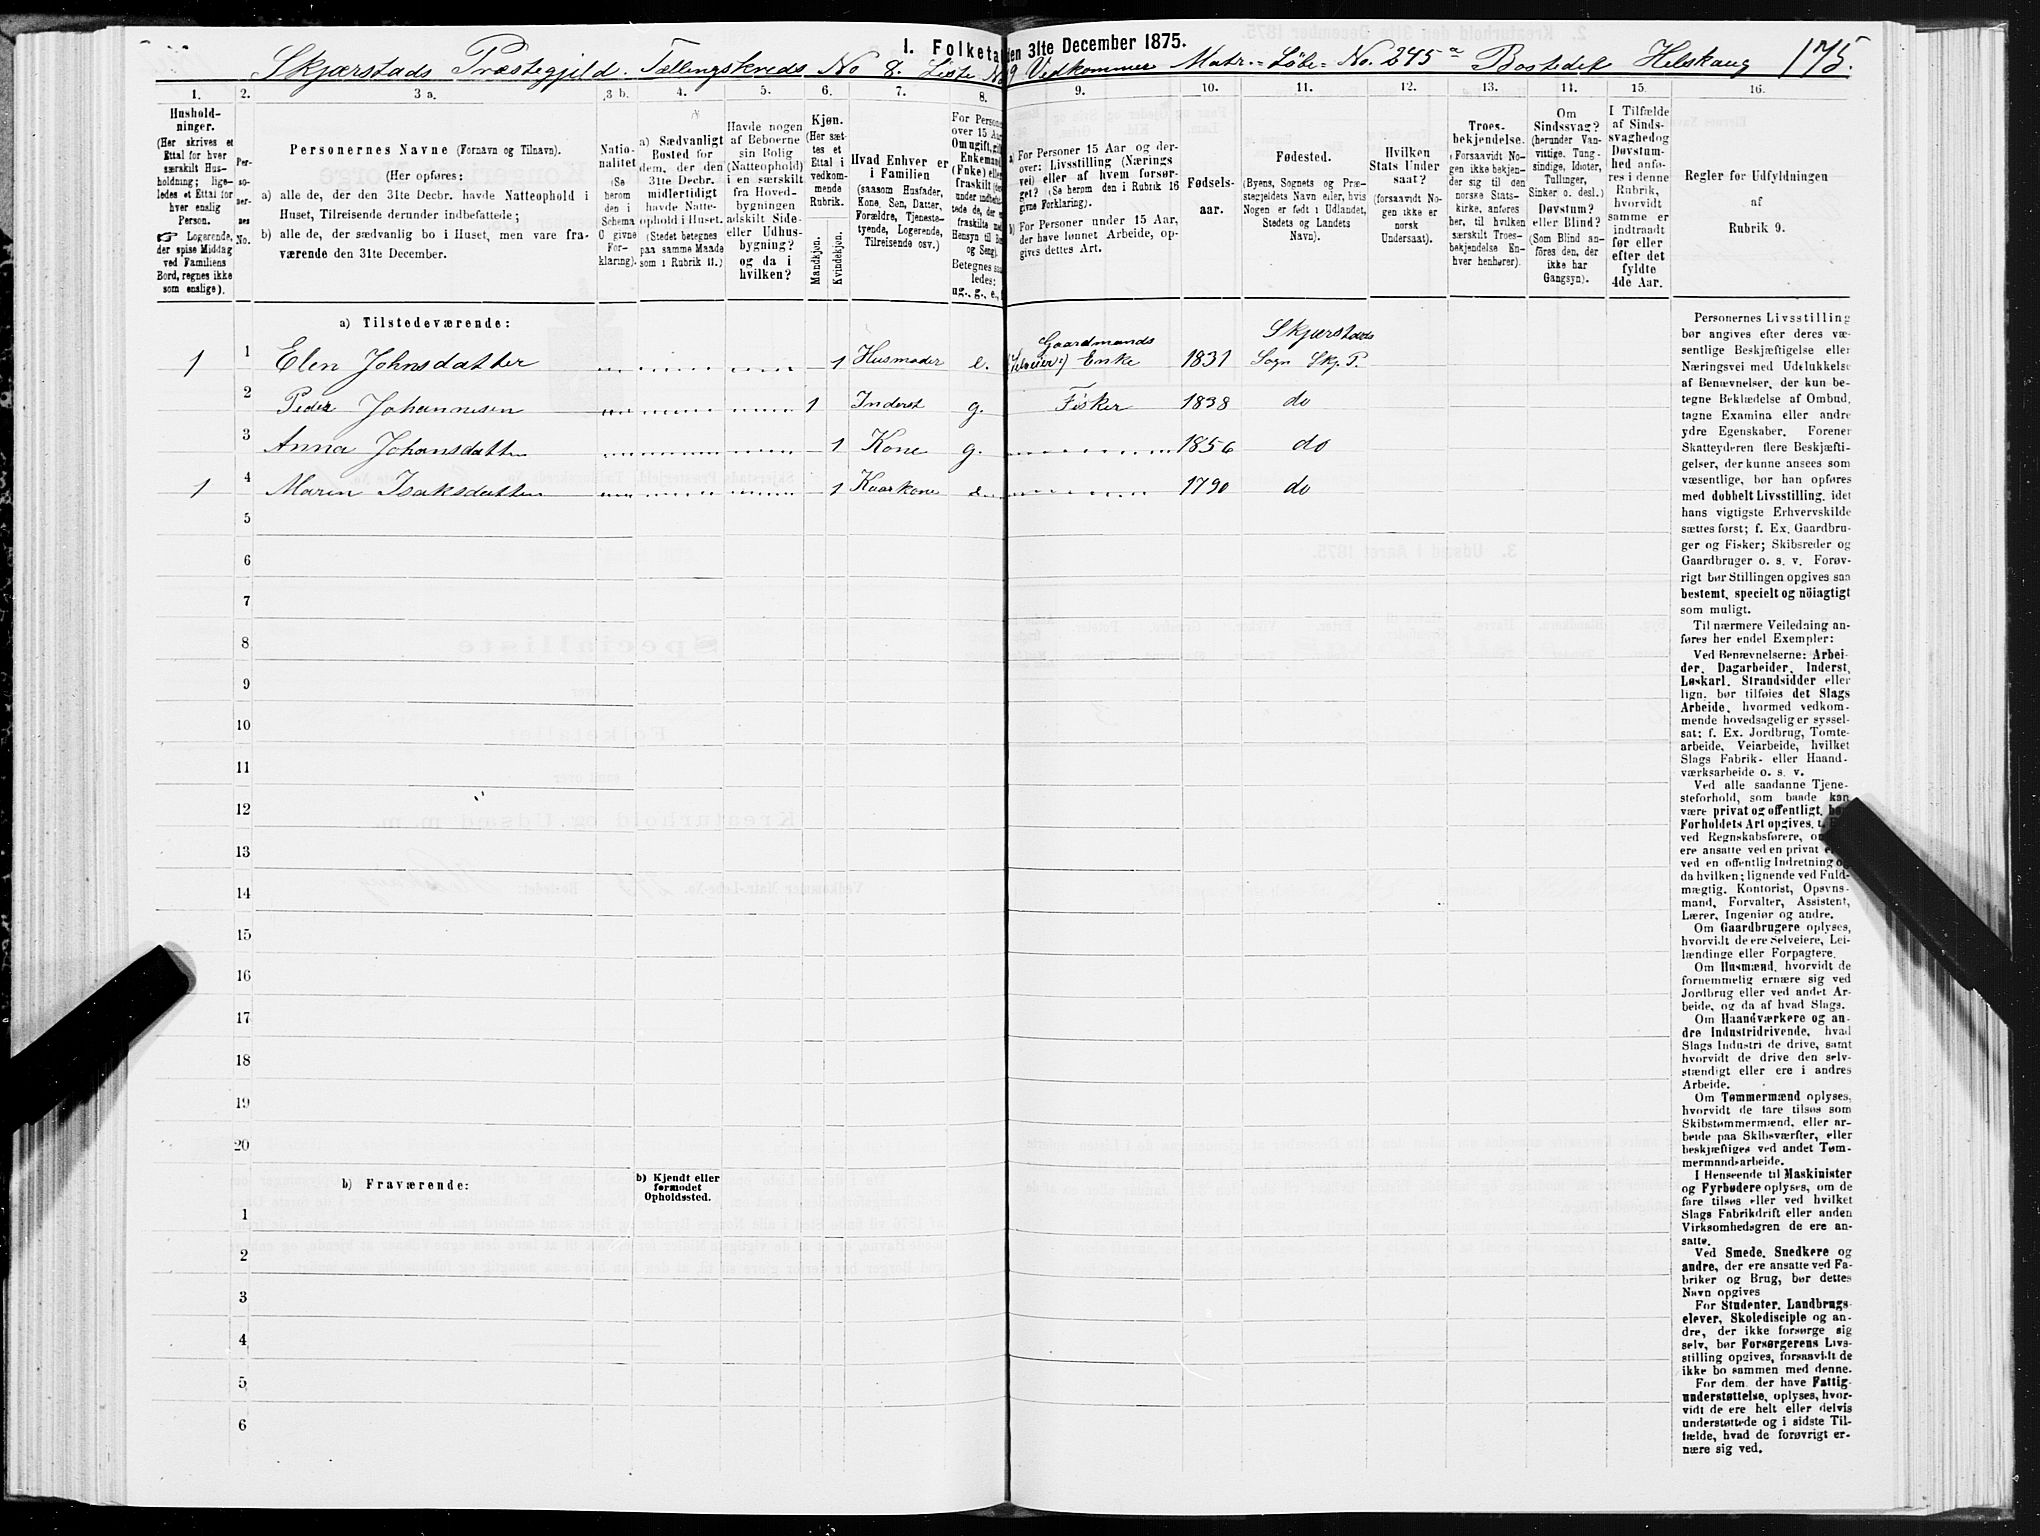 I. Folketa den 31te December 1875.
Skjærstads Præstegjeld. Tællingskreds No 8. Liste No 9 Vedkommer Matr.-Løbe-No. 245 a Bostedet Helskaug 175.
1. 2. 3 a. 3 b. 4. 5. 6. 7. 8. 9. 10. 11. 12. 13. 14. 15. 16.
Hushold-
ninger.
(Her skrives et
Ettal for hver
særskilt Hus-
holdning; lige-
ledes et Ettal for
hver enslig
Person.
☞ Logerende,
der spise Middag
ved Familiens
Bord, regnes ikke
som enslige).
Per-
so-
ner-
nes
No.
Personernes Navne (Fornavn og Tilnavn).
(Her opføres:
a) alle de, der den 31te Decbr. havde Natteophold i
Huset, Tilreisende derunder indbefattede;
b) alle de, der sædvanlig bo i Huset, men vare fra-
værende den 31te December.
Natio-
nalitet
(Se
herom
den i
Schema
O givne
For-
klaring).
a) Sædvanligt
Bosted for
dem, der den
31te Decbr.
midlertidigt
havde Natte-
ophold i Huset.
(Stedet betegnes
paa samme Maade
som i Rubrik 11.)
Havde nogen
af Beboerne
sin Bolig
(Natteophold)
i en særskilt
fra Hoved-
bygningen
adskilt Side-
eller Udhus-
bygning?
og da i
hvilken?
Kjøn.
(Her sæt-
tes et
Ettal i
vedkom-
mende
Rubrik.
Mandkjøn.
Kvindekjøn.
Hvad Enhver er
i Familien
(saasom Husfader,
Kone, Søn, Datter,
Forældre, Tjeneste-
tyende, Logerende,
Tilreisende osv.)
For Persone
over 15 Aar
Om ugift, gift
Enkemand
(Enke) elle
fraskilt
under indbefat-
tede de, der
fraskilte med
Hensyn til Bo
og Seng).
Betegnes saa
ledes:
ug., g., e.,
a) For Personer 15 Aar og der-
over: Livsstilling (Nærings
vei) eller af hvem forsør-
get? (Se herom den i Rubrik 16
givne Forklaring).
b) For Personer under 15 Aar,
der have lønnet Arbeide, op-
gives dettes Art.
Fødsels-
aar.
Fødested.
(Byens, Sognets og Præ-
stegjeldets Navn eller, hvis
Nogen er født i Udlandet,
Stedets og Landets
Navn).
Hvilken
Stats Under
saat?
(forsaavidt No-
gen ikke er
norsk
Undersaat).
Troes-
bekjendelse.
(Forsaavidt No-
gen ikke bekjen-
der sig til den
norske Stats-
kirke, anføres
her, til hvilken
særskilt Troes-
bekjendelse En-
hver henhører).
Om
Sindssvag?
(herunder Van-
vittige, Tung-
sindige, Idioter,
Tullinger,
Sinker o. desl.)
Døvstum?
eller Blind?
(Som Blind an-
føres den, der
ikke har
Gangsyn).
I Tilfælde
af Sinds-
svaghed og
Døvstum-
hed anfø-
res i denne
Rubrik,
hvorvidt
samme er
indtraadt
før eller
efter det
fyldte
4de Aar.
Regler for Udfyldningen
af
Rubrik 9.
a) Tilstedeværende:
1 1 Elen Johnsdatter 1 Husmoder e. Gaardmands (Selveier) Enke 1831 Skjærstads Sogn Skj. P.
2 Peder Johannesen 1 Inderst g. Fisker 1838 do
3 Anna Johansdatter 1 Kone g. 1856 do
1 4 Maren Isaksdatter 1 Kaarkone e. 1790 do
5
6
7
8
9
10
11
12
13
14
15
16
17
18
19
20
b) Fraværende:
b) Kjendt eller
formodet
Opholdssted.
1
2
3
4
5
6
Personernes Livsstilling
bør angives efter deres væ-
sentlige Beskjæftigelse eller
Næringsvei med Udelukkelse
af Benævnelser, der kun be-
tegne Beklædelse af Ombud,
tagne Examina eller andre
ydre Egenskaber. Forener
Skatteyderen flere Beskjæfti-
gelser, der kunne ansees som
væsentlige, bør han opføres
med dobbelt Livsstilling, idet
hans vigtigste Erhvervskilde
sættes først; f. Ex. Gaardbru-
ger og Fisker; Skibsreder og
Gaardbruger o. s. v. Forøv-
rigt bør Stillingen opgives saa
bestemt, specielt og nöiagtigt
som muligt.
Til nærmere Veiledning an-
føres her endel Exempler:
Ved Benævnelserne: Arbei-
der, Dagarbeider, Inderst,
Løskarl, Strandsidder eller
lign. bør tilføies det Slags
Arbeide, hvormed vedkom-
mende hovedsagelig er syssel-
sat: f. Ex. Jordbrug, Tomte-
arbeide, Veiarbeide, hvilket
Slags Fabrik- eller Haand-
værksarbeide o. s. v.
Ved alle saadanne Tjene-
steforhold, som baade kan
være privat og offentligt, bør
Forholdets Art opgives,
ved Regnskabsførere, om
ere ansatte ved en privat
ved en offentlig Indretning og
da hvilken; lignende ved Fuld-
mægtig, Kontorist, Opsyns-
mand, Forvalter, Assistent,
Lærer, Ingeniør og andre.
Om Gaardbrugere oplyses,
hvorvidt de ere Selveiere, Lei-
lændinge eller Forpagtere.
Om Husmænd, hvorvidt de
fornemmelig ernære sig ved
Jordbrug eller ved andet Ar-
beide, og da af hvad Slags.
Om Haandværkere og an-
dre Industridrivende, hvad
Slags Industri de drive, samt
hvorvidt de drive den selv-
stændigt eller ere i andres
Arbeide.
Om Tømmermænd oplyses,
hvorvidt de fare tilsøs som
Skibstømmermænd, eller ar-
beide paa Skibsværfter, eller
beskjæftiges ved andet Tøm-
mermandsarbeide.
I Henseende til Maskinister
og Fyrbødere oplyses, om de
fare tilsøs eller ved hvilket
Slags Fabrikdrift eller anden
Virksomhedsgren de ere an-
satte.
Ved Smede, Snedkere og
andre, der ere ansatte ved Fa-
briker og Brug, bør dettes
Navn opgives
For Studenter, Landbrugs-
elever, Skoledisciple og an-
dre, der ikke forsørge sig
selv, bør Forsørgerens Livs-
stilling opgives, forsaavidt de
ikke bo sammen med denne.
For dem, der have Fattig-
understøttelse, oplyses, hvor-
vidt de ere helt eller delvis
understøttede og i sidste Til-
fælde, hvad de forøvrigt er-
nære sig ved.